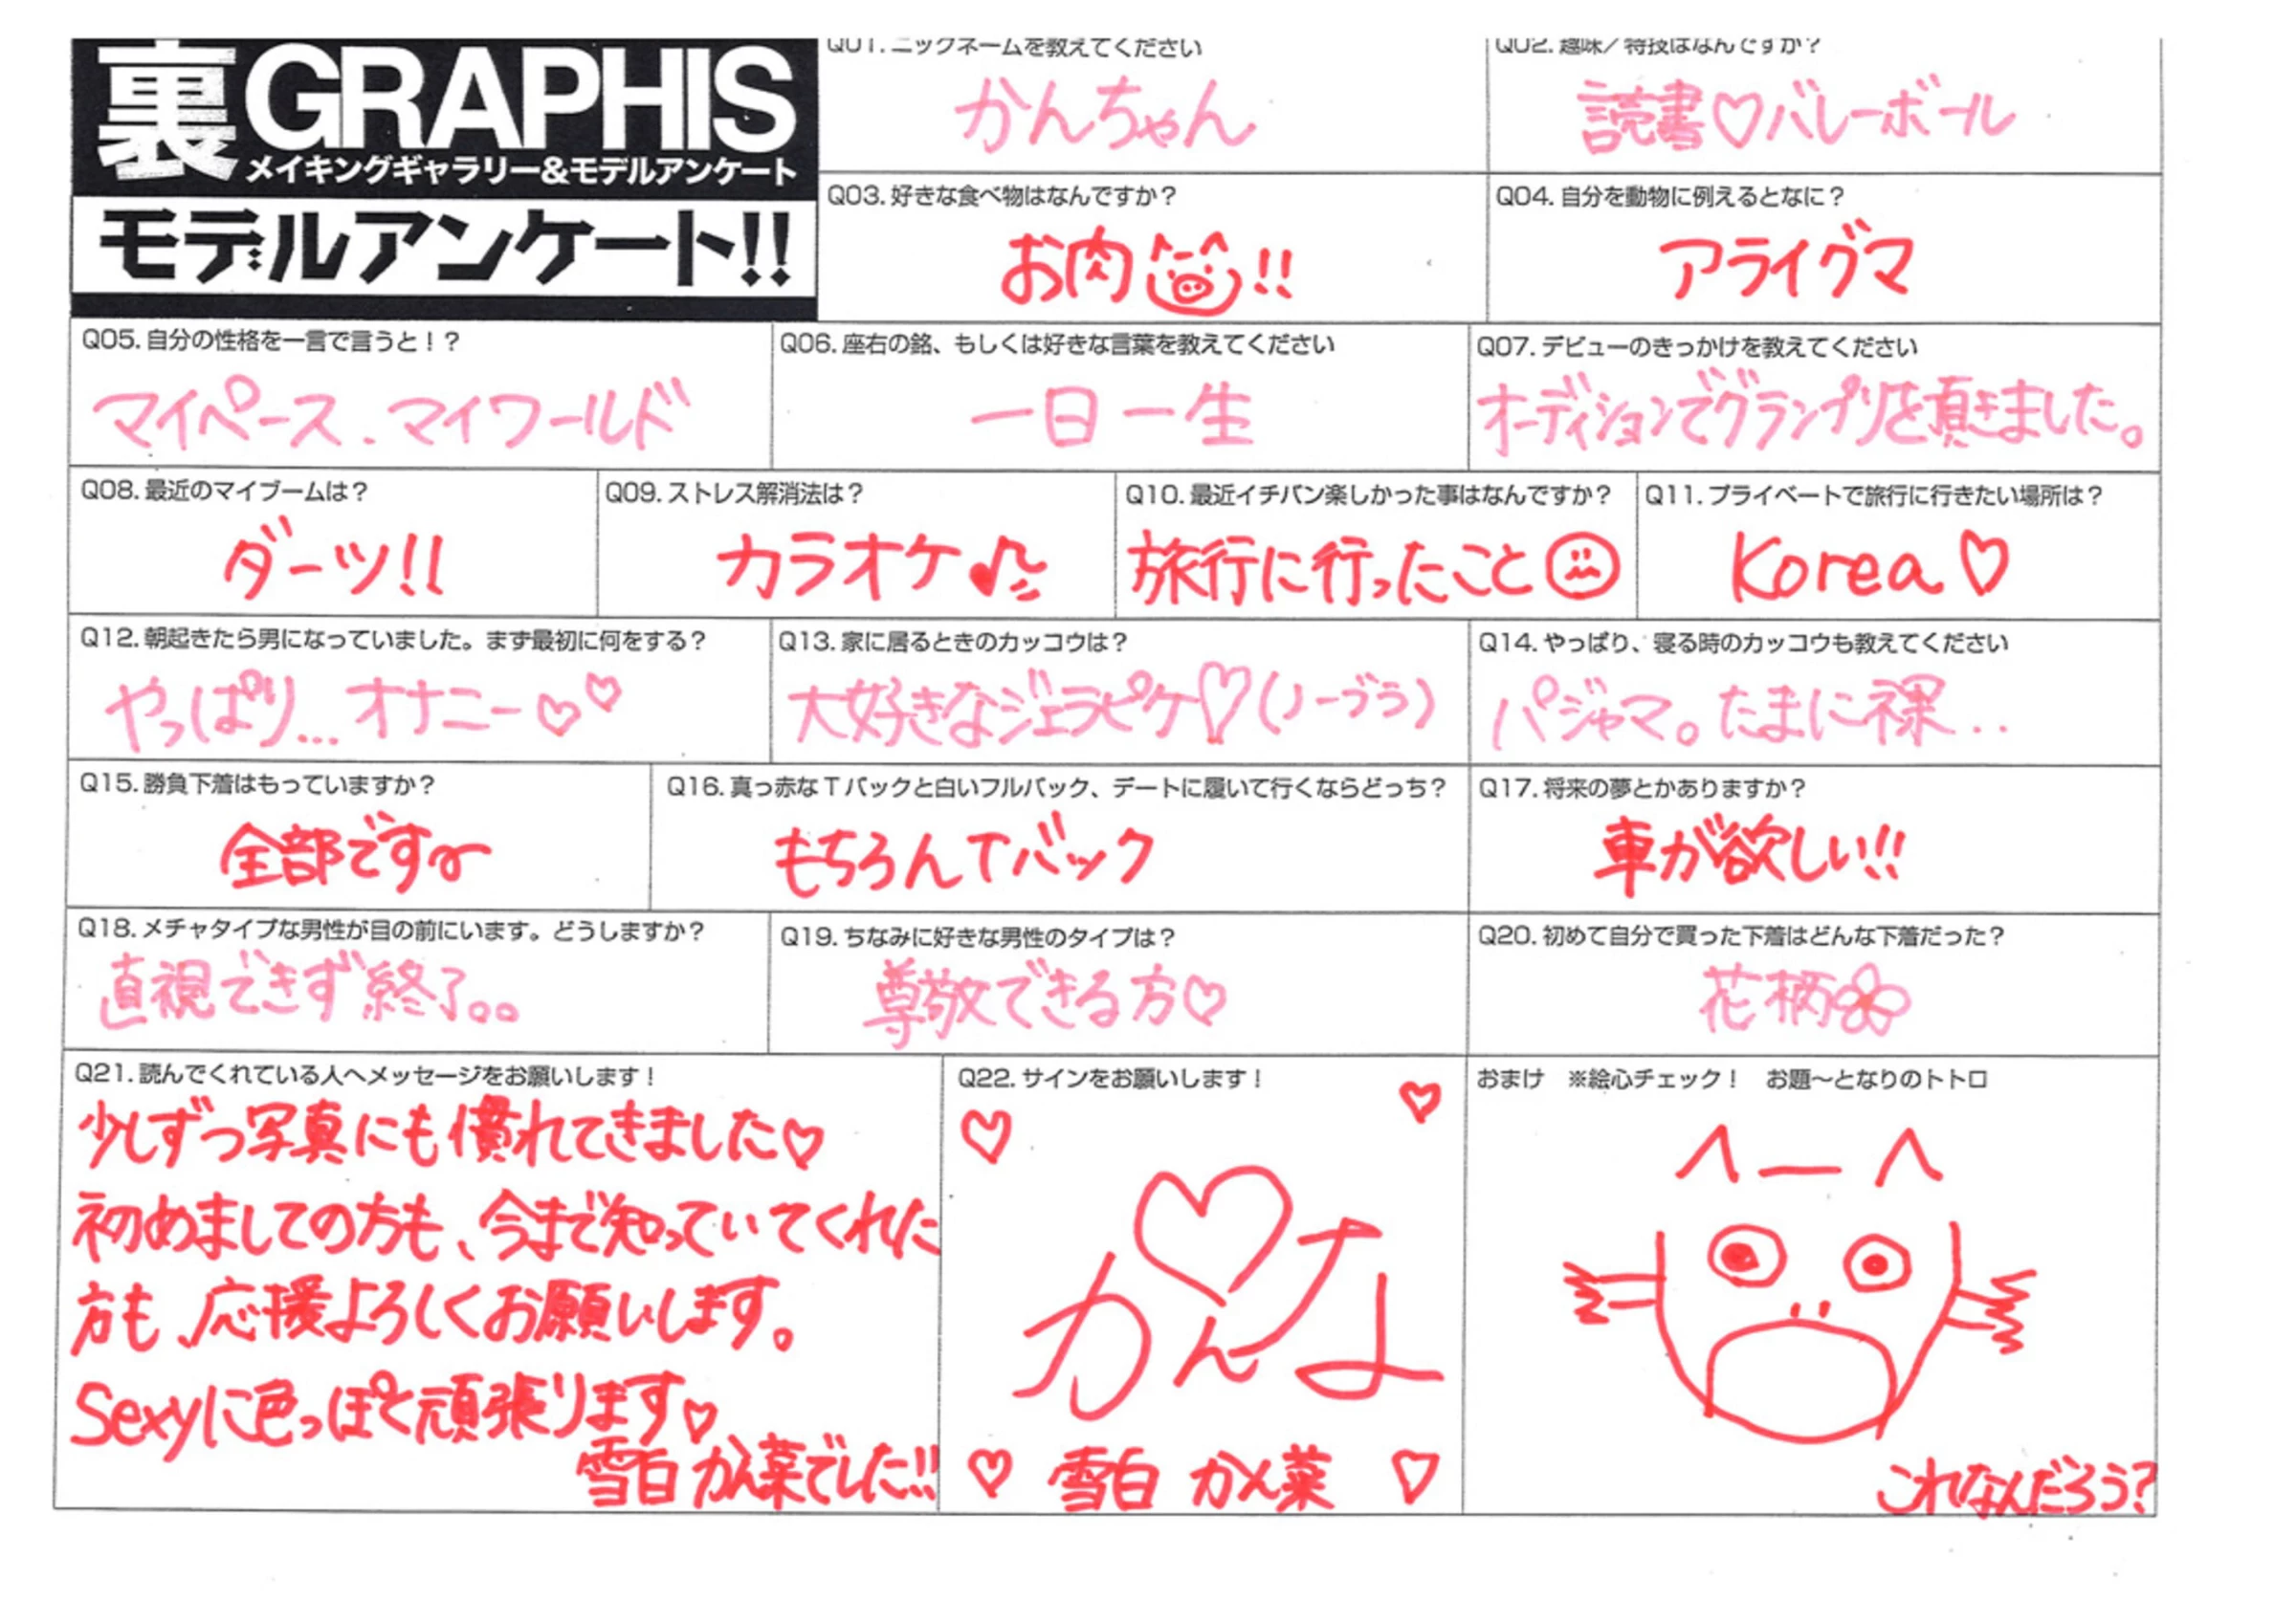 裏GRAPHIS
メイキングギャラリー&モデルアンケート
モデルアンケート!!
Q01. ニックネームを教えてください
かんちゃん
Q02. 趣味／特技はなんですか?
読書♡バレーボール
Q03. 好きな食べ物はなんですか?
お肉!!
Q04. 自分を動物に例えるとなに?
アライグマ
Q05. 自分の性格を一言で言うと!?
マイペース.マイワールド
Q06. 座右の銘、もしくは好きな言葉を教えてください
一日一生
Q07. デビューのきっかけを教えてください
オーディションでグランプリを頂きました。
Q08. 最近のマイブームは?
ダーツ!!
Q09. ストレス解消法は?
カラオケ♪
Q10. 最近イチバン楽しかった事はなんですか?
旅行に行ったこと
Q11. プライベートで旅行に行きたい場所は?
Korea♡
Q12. 朝起きたら男になっていました。まず最初に何をする?
やっぱり...オナニー♡♡
Q13. 家に居るときのカッコウは?
大好きなジェラピケ♡(ノーブラ)
Q14. やっぱり、寝る時のカッコウも教えてください
パジャマ。たまに裸...
Q15. 勝負下着はもっていますか?
全部です
Q16. 真っ赤なTバックと白いフルバック、デートに履いて行くならどっち?
もちろんTバック
Q17. 将来の夢とかありますか?
車が欲しい!!
Q18. メチャタイプな男性が目の前にいます。どうしますか?
直視できず終了。。
Q19. ちなみに好きな男性のタイプは?
尊敬できる方♡
Q20. 初めて自分で買った下着はどんな下着だった?
花柄
Q21. 読んでくれている人へメッセージをお願いします!
少しずつ写真にも慣れてきました♡
初めましての方も、今まで知っていてくれた
方も、応援よろしくお願いします。
Sexyに色っぽく頑張ります♡
雪白 かん菜でした!!
Q22. サインをお願いします!
かんな
♡ 雪白 かん菜 ♡
おまけ ※絵心チェック! お題〜となりのトトロ
これなんだろう?